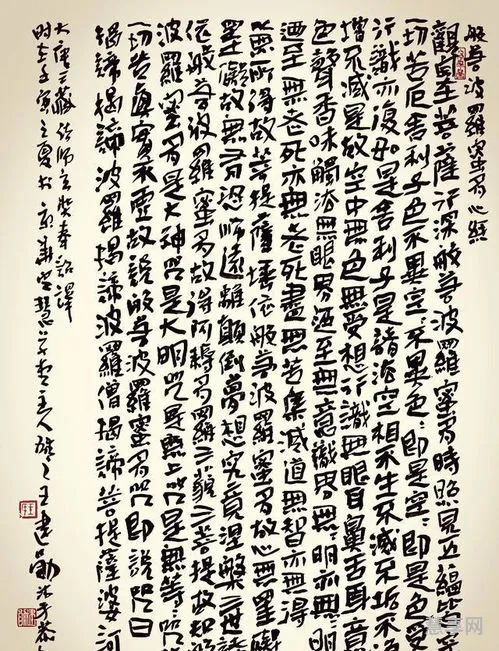 般若波羅蜜多心經
觀自在菩薩行深般若波羅蜜多時照見五蘊皆
一切苦厄舍利子色不異空〻不異色〻即是空〻即是色受
行識亦復如是舍利子是諸法空相不生不滅不垢不
增不減是故空中無色無受想行識無眼耳鼻舌身意
色聲香味觸法無眼界乃至無意識界無〻明亦無
乃至無老死亦無老死盡無苦集滅道無智亦無得
以無所得故菩提薩埵依般若波羅蜜多故心無罣礙
罣礙故無有恐怖遠離顛倒夢想究竟涅槃三世諸
依般若波羅蜜多故得阿耨多羅三藐三菩提故知般
波羅蜜多是大神咒是大明咒是無上咒是無等〻咒
一切苦真實不虛故說般若波羅蜜多咒即說咒曰
揭諦揭諦波羅揭諦波羅僧揭諦菩提薩婆訶
大唐三藏法師玄奘奉詔譯
时在壬寅之夏於京華主人王建勛